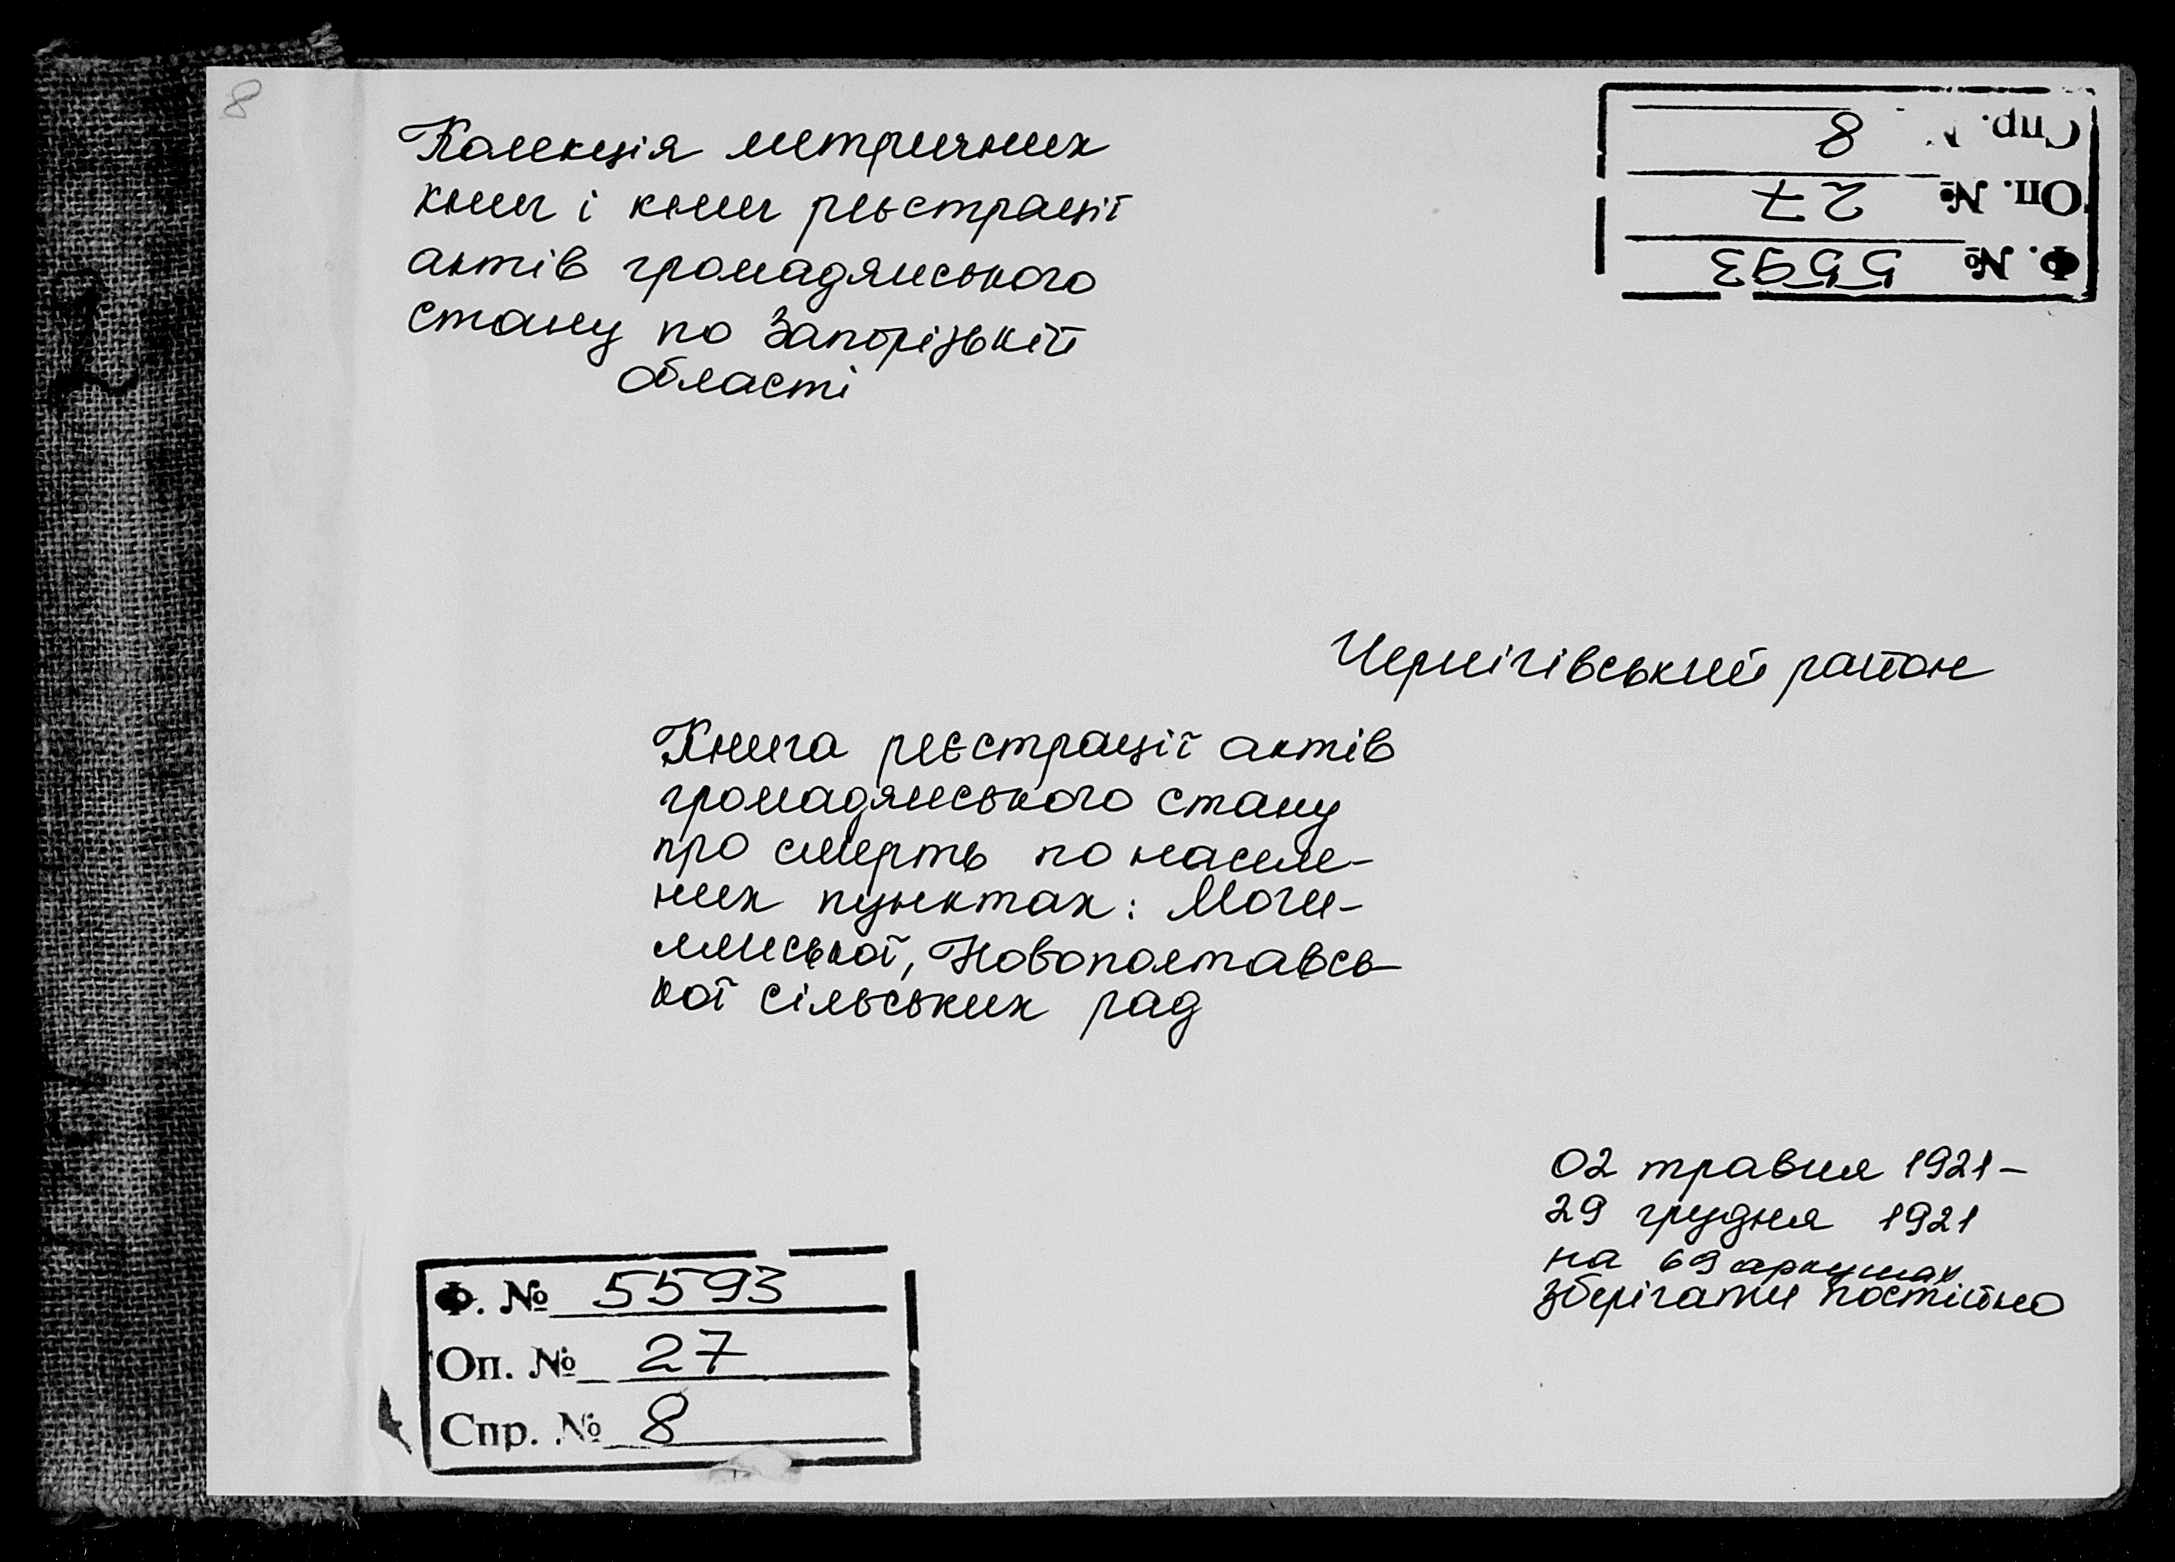 8
Колекція метричних
книг і книг реєстрації
актів громадянського
стану по Запорізькій
області
Ф. № 5593
Оп. № 27
Спр. № 8
Чернігівський район
Книга реєстрації актів
громадянського стану
про смерть по населе-
них пунктах: Моги-
лянської, Новополтавсь-
кої сільських рад
02 травня 1921-
29 грудня 1921
на 69 аркушах
зберігати постійно
Ф. № 5593
Оп. № 27
Спр. № 8